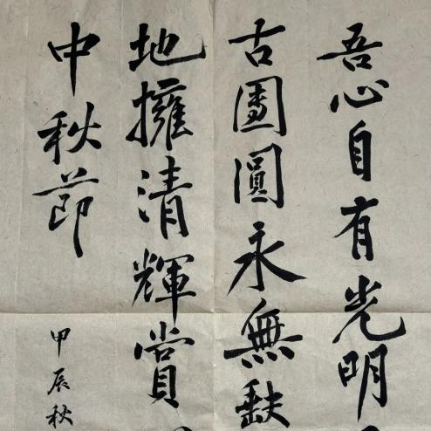 吾心自有光明
古團圓永無缺
地擁清輝賞
中秋節
甲辰秋